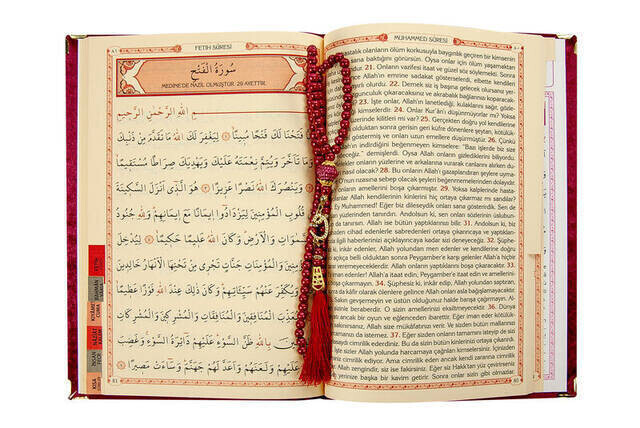 FETİH SÛRESİ
سُورَةُ الْفَتْحِ
MEDİNE'DE NAZİL OLMUŞTUR. 29 AYETTİR.
اللّٰهِ الرَّحْمٰنِ الرَّحِيمِ
فَتَحْنَا لَكَ فَتْحًا مُبِينًا ۝ لِيَغْفِرَ لَكَ اللّٰهُ مَا تَقَدَّمَ مِنْ ذَنْبِكَ
وَمَا تَاَخَّرَ وَيُتِمَّ نِعْمَتَهُ عَلَيْكَ وَيَهْدِيَكَ صِرَاطًا مُسْتَقِيمًا
وَيَنْصُرَكَ اللّٰهُ نَصْرًا عَزِيزًا ۝ هُوَ الَّذِى اَنْزَلَ السَّكِينَةَ
قُلُوبِ الْمُؤْمِنِينَ لِيَزْدَادُوا اِيمَانًا مَعَ اِيمَانِهِمْ وَلِلّٰهِ جُنُودُ
السَّمٰوَاتِ وَالْاَرْضِ وَكَانَ اللّٰهُ عَلِيمًا حَكِيمًا ۝ لِيُدْخِلَ
وَالْمُؤْمِنَاتِ جَنَّاتٍ تَجْرِى مِنْ تَحْتِهَا الْاَنْهَارُ خَالِدِينَ
وَيُكَفِّرَ عَنْهُمْ سَيِّـَٔاتِهِمْ وَكَانَ ذٰلِكَ عِنْدَ اللّٰهِ فَوْزًا عَظِيمًا
وَيُعَذِّبَ الْمُنَافِقِينَ وَالْمُنَافِقَاتِ وَالْمُشْرِكِينَ وَالْمُشْرِكَاتِ
بِاللّٰهِ ظَنَّ السَّوْءِ عَلَيْهِمْ دَائِرَةُ السَّوْءِ وَغَضِبَ
عَلَيْهِمْ وَلَعَنَهُمْ وَاَعَدَّ لَهُمْ جَهَنَّمَ وَسَاءَتْ مَصِيرًا
MUHAMMED SÛRESİ
hastalık olanların ölüm korkusuyla baygınlık geçiren bir kimsenin
baktığını görürsün. Oysa onlar için ölüm yaşamaktan
21. Onların vazifesi itaat ve güzel söz söylemekti. Sonra
Allah'ın emrine sadakat gösterselerdi, elbette kendileri
olurdu. 22. Demek siz iş başına gelecek olursanız yeryü-
bozgunculuk çıkaracaksınız ve akrabalık bağlarınızı koparacak-
23. İşte onlar, Allah'ın lanetlediği, kulaklarını sağır, gözle-
24. Onlar Kur'an'ı düşünmüyorlar mı? Yoksa
kilitleri mi var? 25. Gerçekten doğru yol kendilerine
olduktan sonra gerisin geri küfre dönenlere şeytan, kötülük-
göstermiş ve onları uzun emellere düşürmüştür. 26. Çünkü
indirdiğini beğenmeyen kimselere: "Bazı işlerde biz size
demişlerdi. Oysa Allah onların gizlediklerini biliyordu.
onların yüzlerine ve arkalarına vurarak canlarını alırken du-
28. Bu onların Allah'ı gazaplandıran şeylere uyma-
O'nun rızasına sebep olacak şeyleri beğenmemelerinden dolayıdır.
onların amellerini boşa çıkarmıştır. 29. Yoksa kalplerinde hasta-
kimseler Allah'ın kinlerini hiç ortaya çıkarmaz mı sandılar?
Ey Muhammed! Eğer biz dileseydik onları sana gösterirdik. Sen
yüzlerinden tanırdın. Andolsun ki, sen onları sözlerinin uslubun-
tanırsın. Allah ise bütün yaptıklarınızı bilir. 31. Andolsun ki,
cihad edenlerle sabredenleri ortaya çıkarıncaya ve yaptıkları-
ilgili haberlerinizi açıklayıncaya kadar sizi deneyeceğiz. 32. Şüphe-
inkâr edenler, Allah yolundan men edenler ve kendilerine doğru
olduktan sonra Peygamber'e karşı gelenler Allah'a hiçbir
veremeyeceklerdir. Allah onların yaptıklarını boşa çıkaracaktır. 33.
iman edenler! Allah'a itaat edin, Peygamber'e itaat edin ve amellerini-
çıkarmayın. 34. Şüphesiz ki, inkâr edip, Allah yolundan saptıran,
da kâfir olarak ölenlere gelince Allah onları asla bağışlamayacaktır.
Sakın gevşemeyin ve üstün olduğunuz halde barışa çağırmayın. Al-
beraberdir. O sizin amellerinizi eksiltmeyecektir. 36. Dünya
ancak bir oyun ve eğlenceden ibarettir. Eğer iman eder kötülük-
Allah size mükâfatınızı verir. Ve sizden bütün mallarınızı
37. Eğer sizden onların tamamını isteyip de sizi
cimrilik ederdiniz. Bu da sizin bütün kinlerinizi ortaya çıkarırdı.
Allah yolunda harcamaya çağrılan kimselersiniz. İçinizden
cimrilik ediyor. Ama cimrilik eden ancak kendi zararına cimrilik
Allah zengindir, siz ise fakirsiniz. Eğer siz Hakk'tan yüz çevirirseniz
yerinize başka bir kavim getirir. Sonra onlar sizin gibi olmazlar.